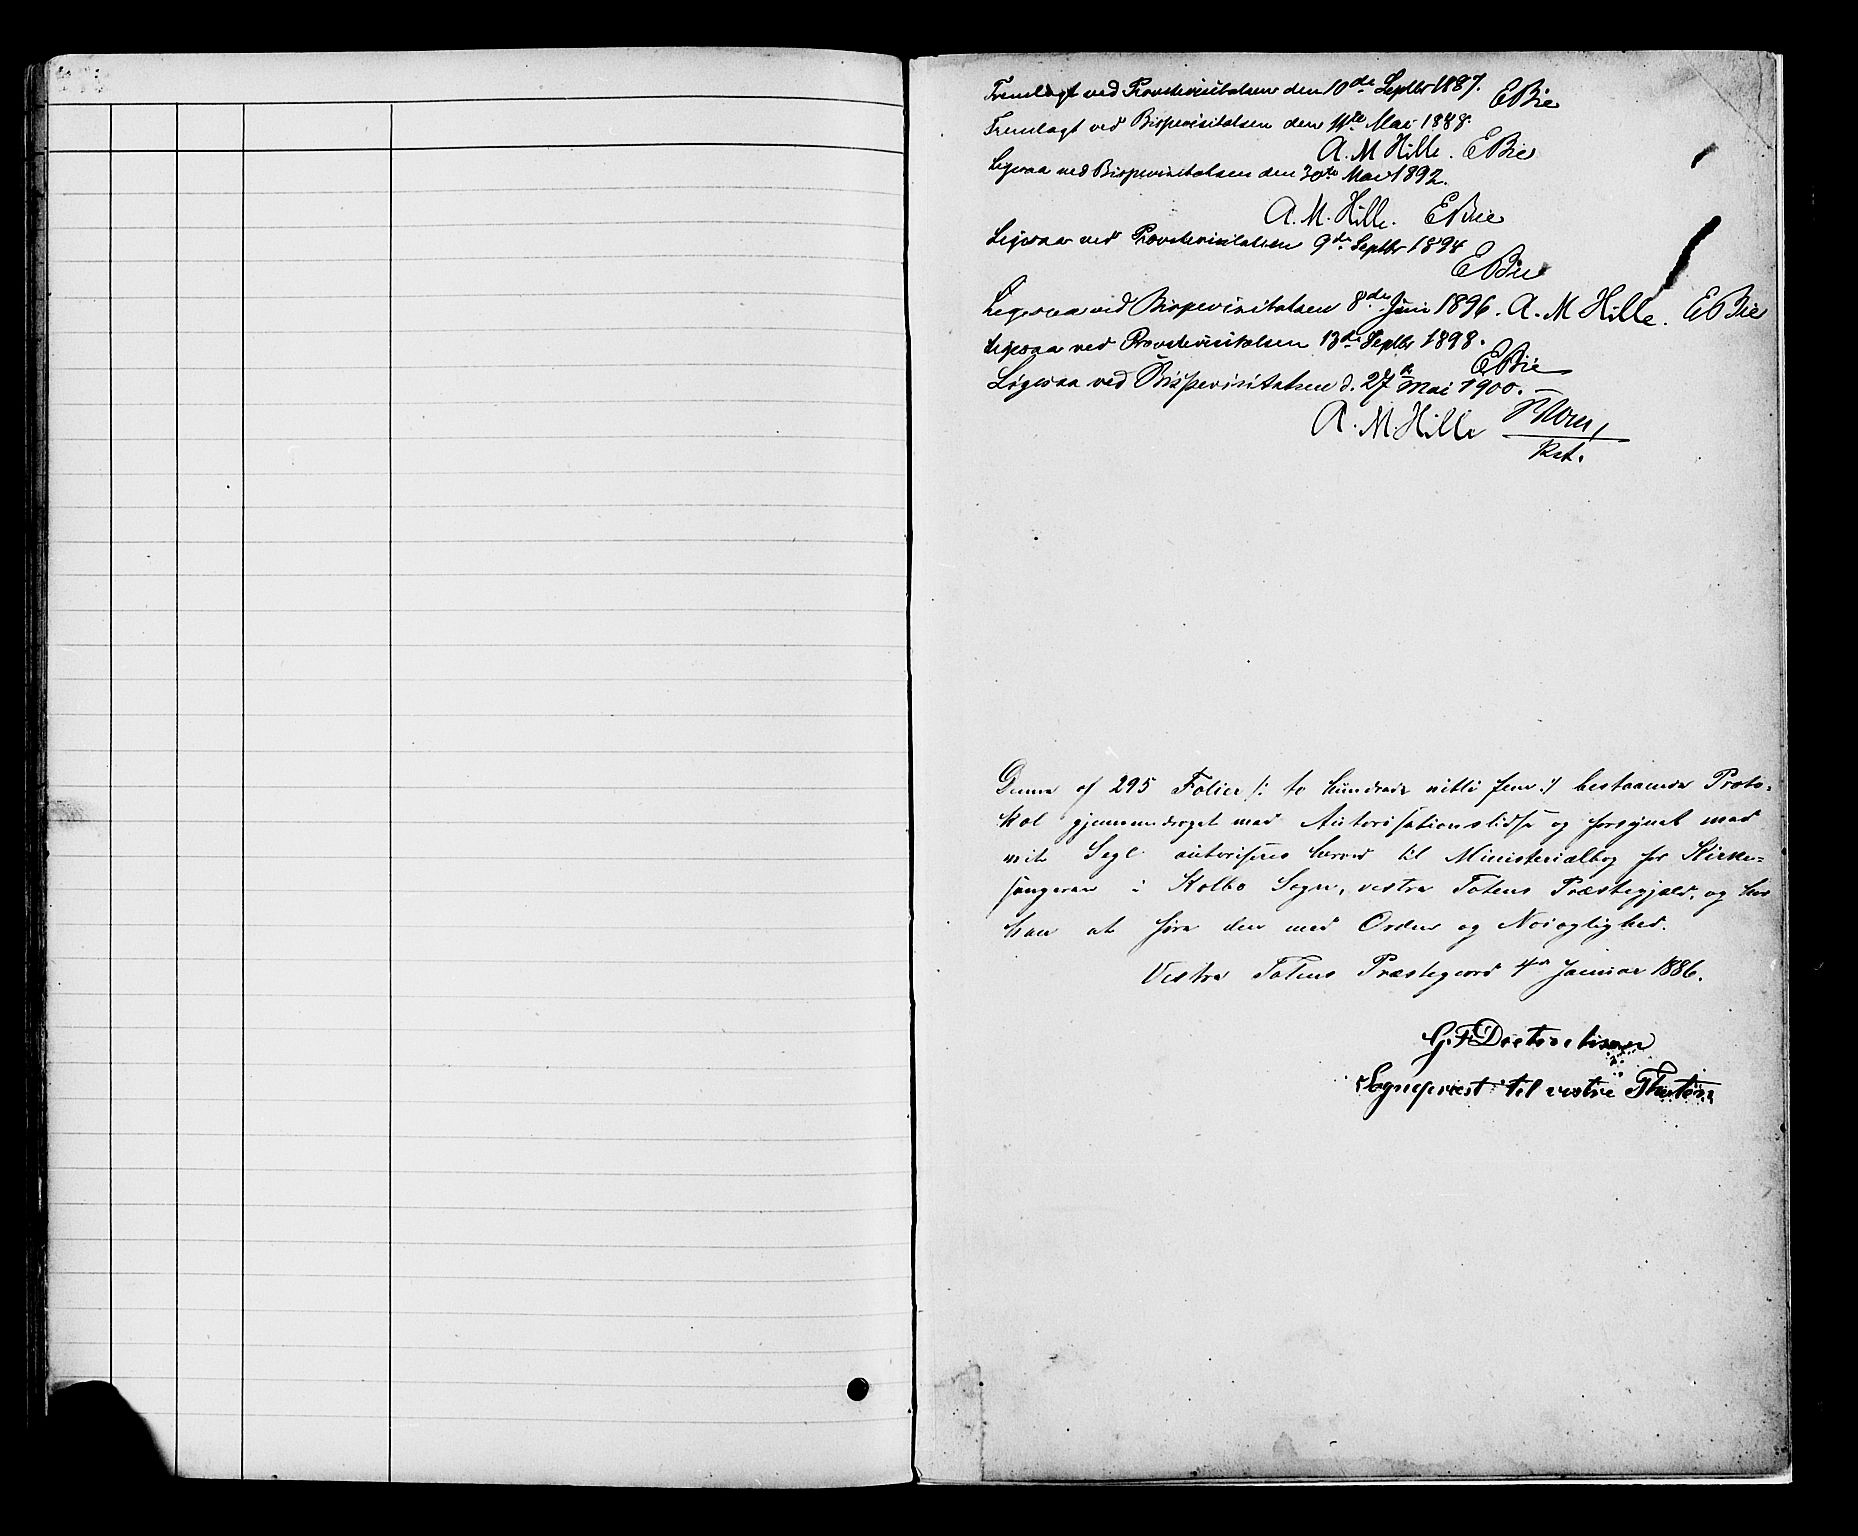 Fremlagt ved Provstevisitatsen den 10de Septbr 1887. EBie
Fremlagt ved Bispevisitatsen den 11te Mai 1888.
A. M Hille. EBie
Ligesaa ved Bispevisitatsen den 30te Mai 1892.
A. M. Hille. EBie
Ligesaa ved Provstevisitatsen 9de Septbr 1894
EBie
Ligesaa ved Bispevisitatsen 8de Juni 1896. A. M Hille. EBie
Ligesaa ved Provstevisitatsen 13de Septbr 1898.
EBie
Ligesaa ved Bispevisitatsen d. 27de Mai 1900.
A. M. Hille
Denne af 295 Folier /: to hundrede nitti fem :/ bestaaende Proto-
kol gjennemdraget med Autorisationslidse og forsynet med
mit Segl autoriseres herved til Ministerialbog for Kirke-
sangeren i Kolbo Sogn, vestre Totens Præstegjæld, og har
han at føre den med Orden og Nøiagtighed.
Vestre Totens Præstegaard 4de Januar 1886.
G. F.
Sognepræst til vestre Thoten